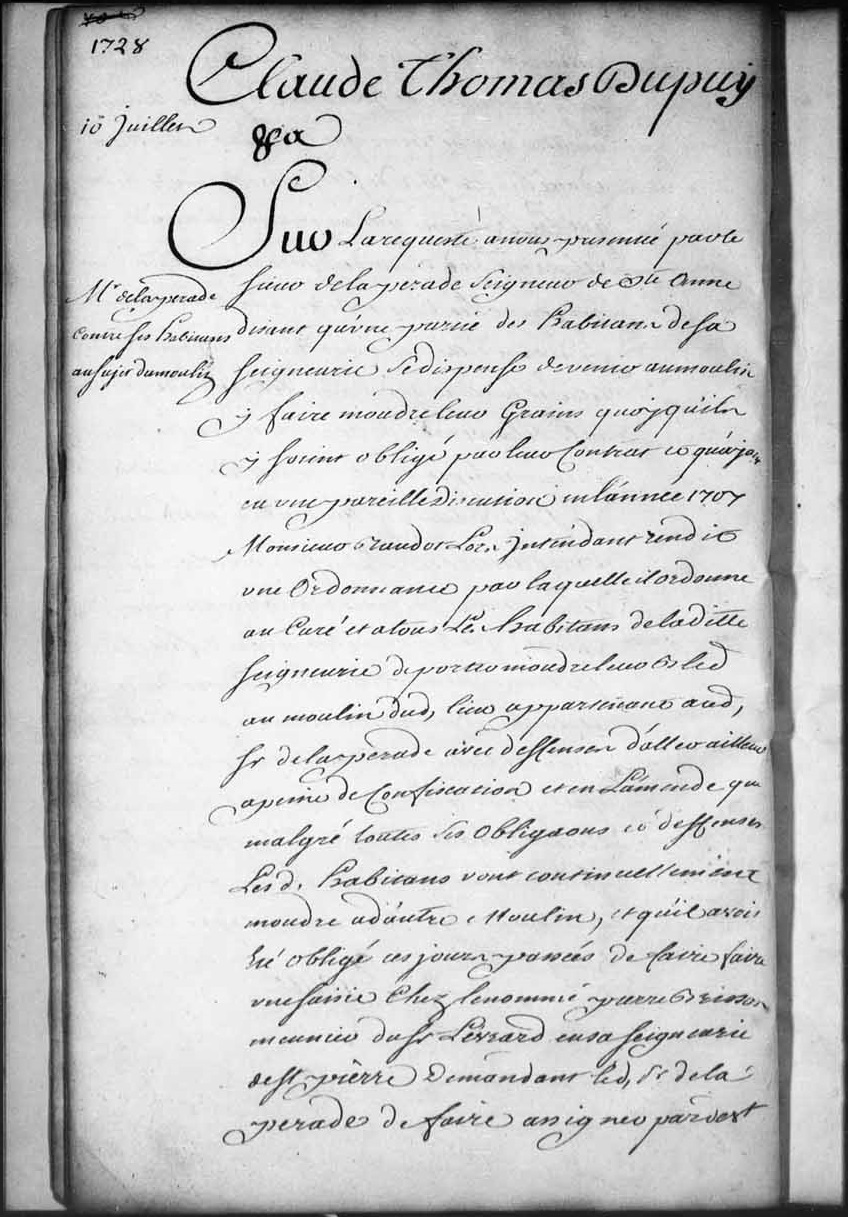 1728
Claude Thomas Dupuy
10 Juillet
&a
Sur La requeste a nous presenté par le
Mr de la perade
Sieur de la perade Seigneur de Ste Anne
Contre ses habitans
disant qu'une partie des habitans de sa
au sujet du moulin
Seigneurie Se dispense de venir au moulin
y faire moudre leur Grains quoy qu'ils
y soient obligé par leur Contrat et qu'ayant
eu une pareille Discution en l'année 1707
Monsieur Raudot Lors Intendant rendit
une Ordonnance par laquelle il ordonne
au Curé et a tous Les habitans de laditte
Seigneurie de porter moudre leur bled
au moulin dud, lieu appartenant aud,
Sr de la perade avec deffenses d'aller ailleurs
a peine de Confiscation et en L'amende que
malgré toutes ses obligaons et deffenses
Lesd. habitans vont continuellement
moudre a d'autre Moulin, et qu'il avoit
Eté obligé ces jours passés de faire faire
une saisie Chez le nommé pierre Brisson
meunier du Sr Levrard en sa seigneurie
de St pierre Demandant led, Sr de la
perade de faire assigner pardevt